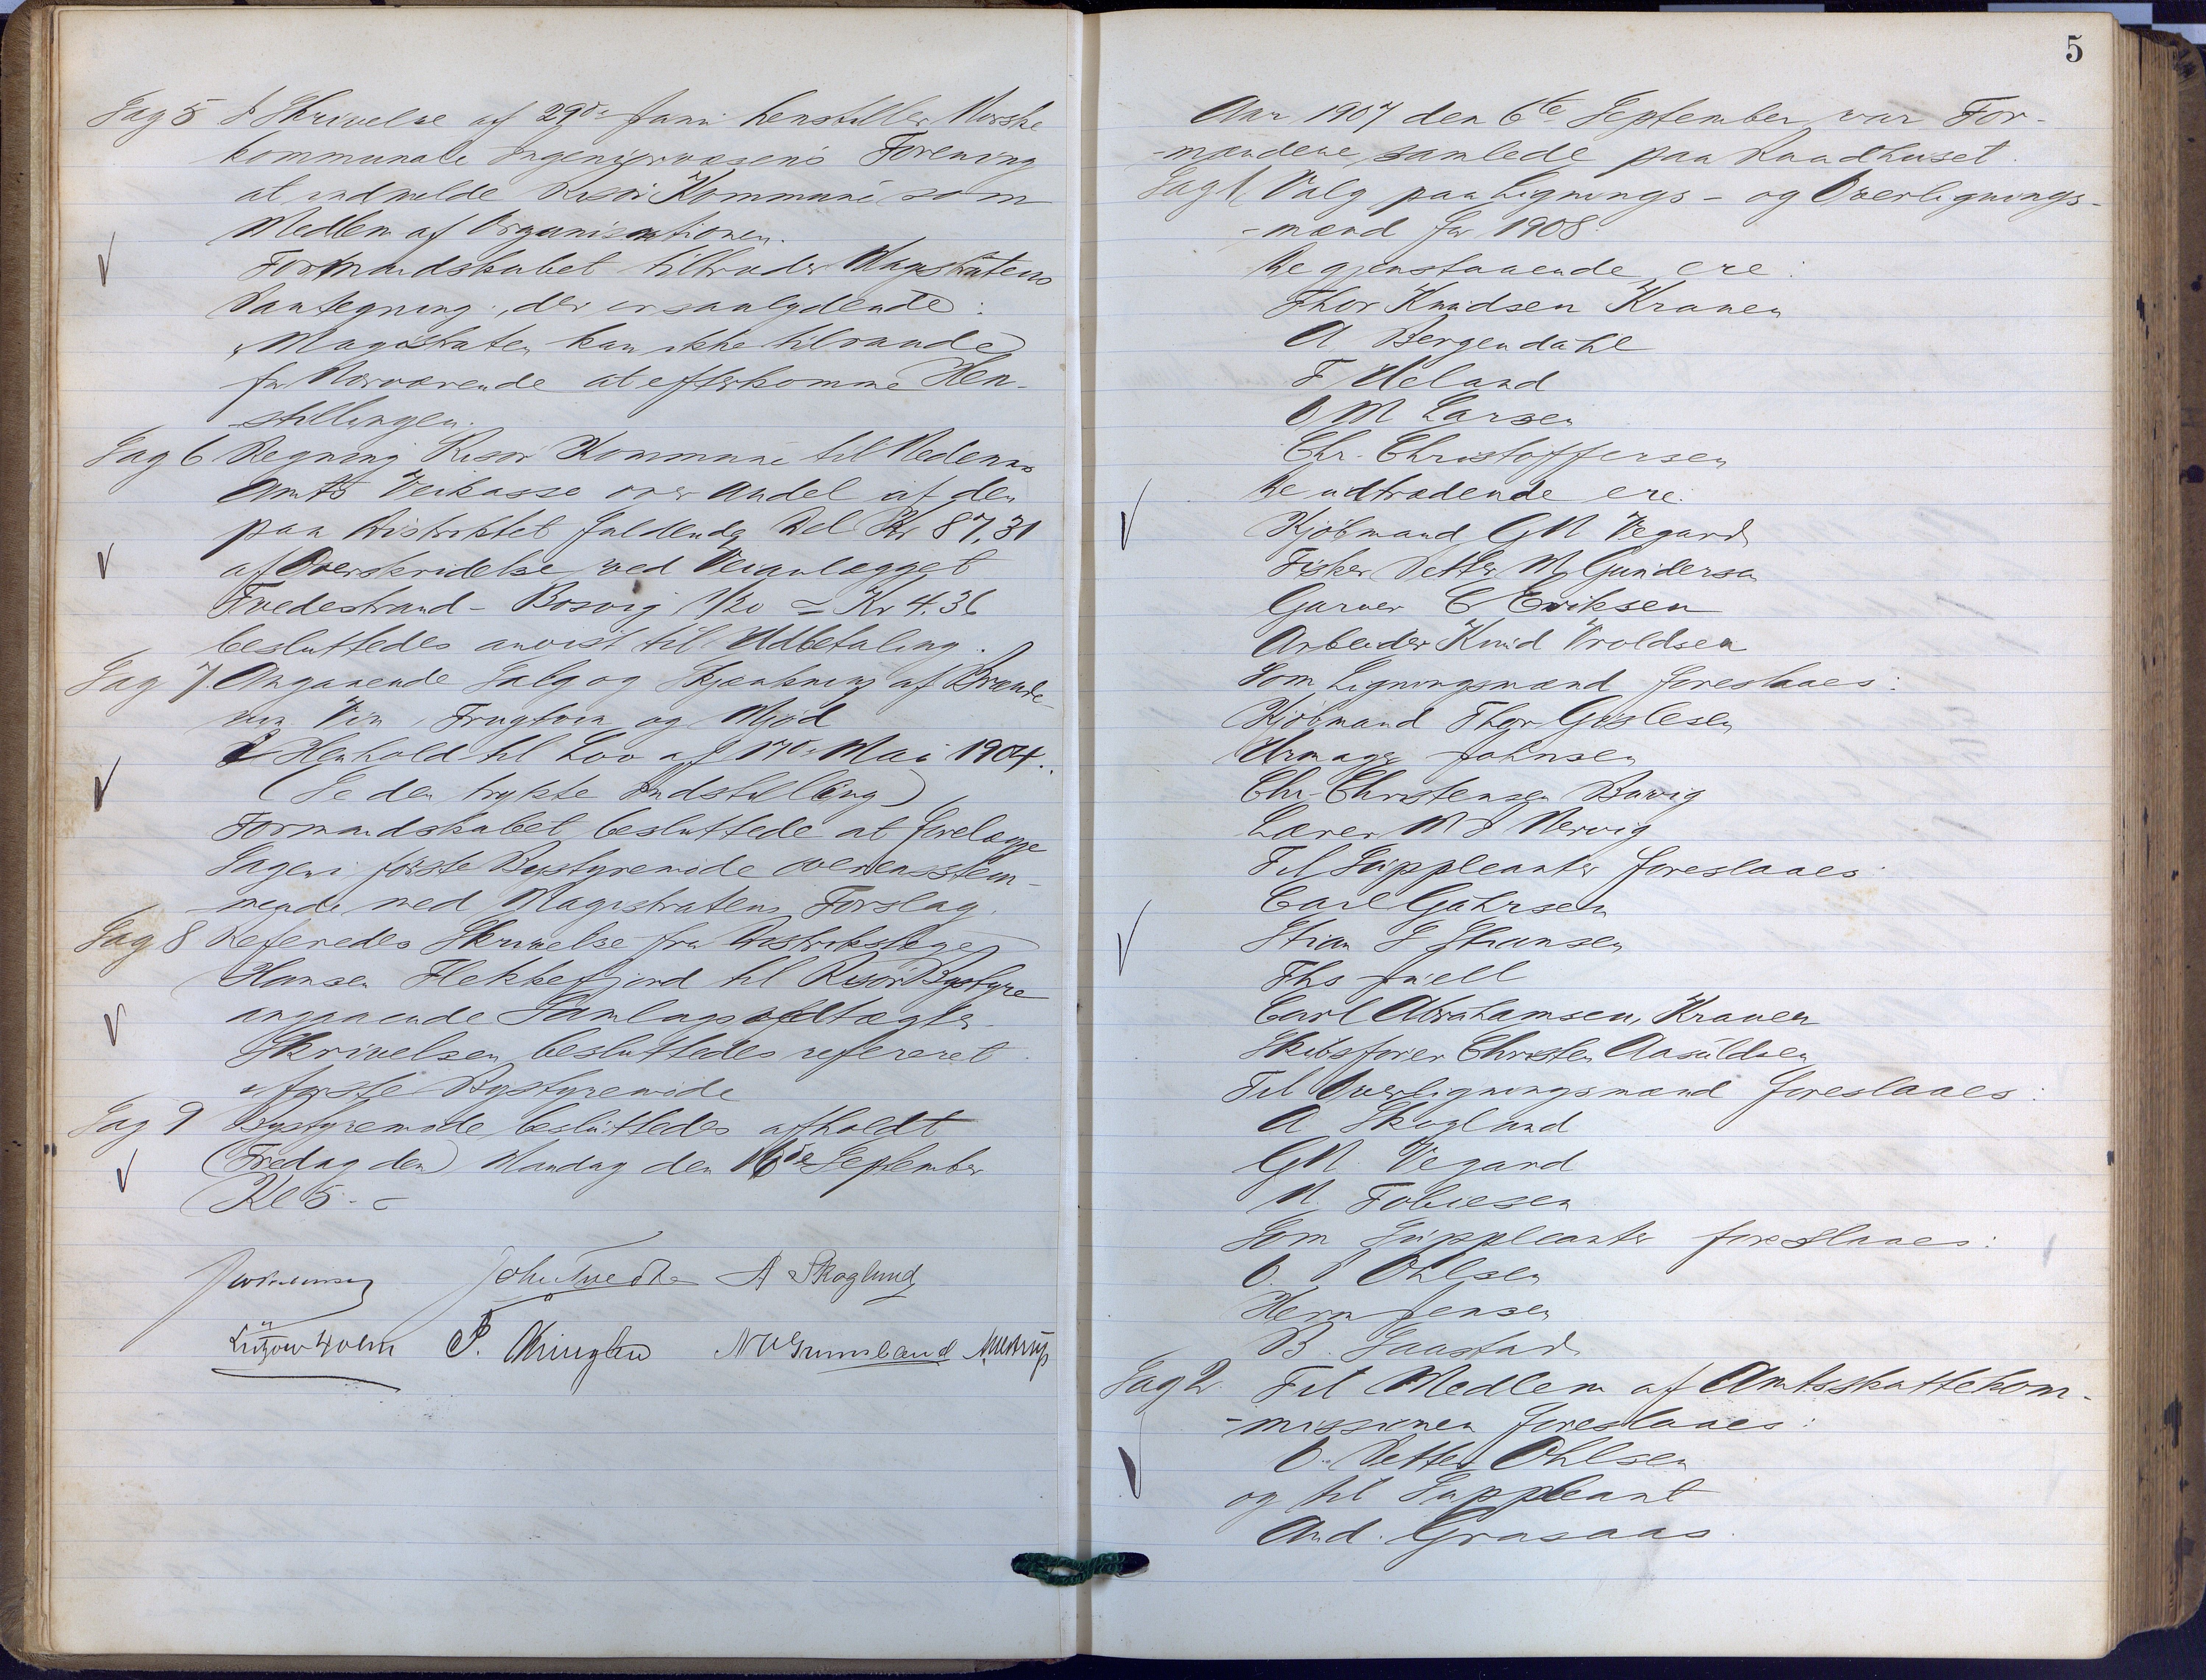 Sag 5 I Skrivelse af 29de Juni henstiller Norske
kommunale Ingeniørvæsens Forening
at indmelde Risør Kommune som
Medlem af Organisationen.
Formandskabet tiltræder Magistratens
Paategning, der er saalydende:
"Magistraten kan ikke tilraade
for Nærværende at efterkomme Hen-
stillingen.
Sag 6 Regning Risør Kommune til Nedenes
Amts Veikasse over Andel af den
paa Distriktet faldende Del Kr 87,31
af Overskridelse ved Veianlægget
Tvedestrand - Bosvig 1/20 = Kr 4.36
besluttedes anvist til Udbetaling.
Sag 7. Angaaende Salg og Skjænkning af Brænde-
vin Vin, Frugtvin og Mjød
I Henhold til Lov af 17de Mai 1904.
(Se den trykte Indstilling)
Formandskabet besluttede at forelægge
Sagen i første Bystyremøde overensstem-
mende med Magistratens Forslag.
Sag 8 Referedes Skrivelse fra Distriktslæge
Hansen Flekkefjord til Risør Bystyre
angaaende Samlagsvedtægter.
Skrivelsen besluttedes refereret
i første Bystyremøde
Sag 9 Bystyremøde besluttedes afholdt
(Fredag den) Mandag den 16de September
Kl 5. -
John Tvedte A Skoglund
Lützow Holm P.
5
Aar 1907 den 6te September var For-
-mændene samlede paa Raadhuset.
Sag 1 Valg paa Lignings- og Overlignings-
-mænd for 1908
De gjenstaaende ere:
Thor Knudsen Kranen
A Bergendahl
F Ueland
O M Larsen
Chr. Christoffersen
De udtrædende ere:
Kjøbmand G N Vegard
Fisker Petter M Gundersen
Garver C Eriksen
Arbeider Knud Vroldsen
Som Ligningsmænd foreslaaes:
Kjøbmand Thor Gislesen
Urmager Johnsen
Chr. Christensen Buvig
Lærer Nervig
Til Suppleanter foreslaaes
Carl Gahrsen
Stian S Stiansen
Ths Juell
Carl Abrahamsen, Kranen
Skibsfører Christen Aasuldsen
Til Overligningsmænd foreslaaes:
A Skoglund
G N. Vegard
N. Tobiesen
Som Suppleanter foreslaaes:
O. P Ohlsen
Herm Jensen
B. Saastad
Sag 2. Til Medlem af Amtsskattekom-
-missionen foreslaaes:
O. Petter Ohlsen
og til Suppleant
And. Grasaas.